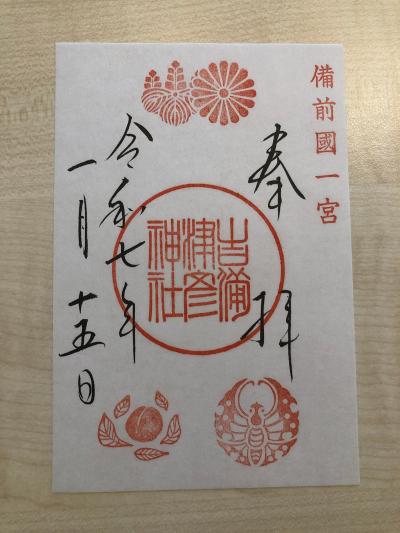 備前國一宮
奉拝
吉備
津彦
神社
令和七年
一月十五日